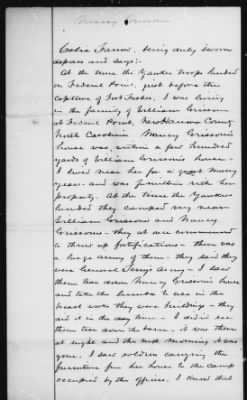 Nancy Grissom
Celia Farrow, being duly sworn
deposes and says:-
At the time the Yankee troops landed
on Federal Point, just before the
capture of Fort Fisher, I was living
in the family of William Grissom
at Federal Point, New Hanover County
North Carolina. Nancy Grissom's
house was within a few hundred
yards of William Grissom's house -
I lived near her for a great many
years and was familiar with her
property. At the time the Yankees
landed they camped very near
William Grissoms and Nancy
Grissoms - they at once commenced
to throw up fortifications - there was
a huge army of them - they said they
were General Terry's Army - I saw
them tear down Nancy Grissom's house
and take the lumber to use in the
breast works they were building - they
did it in the day time - I did not see
them tear down the barn - it was there
at night and the next morning it was
gone. I saw soldiers carrying the
furniture from her house to the camp
occupied by the officers. I know that